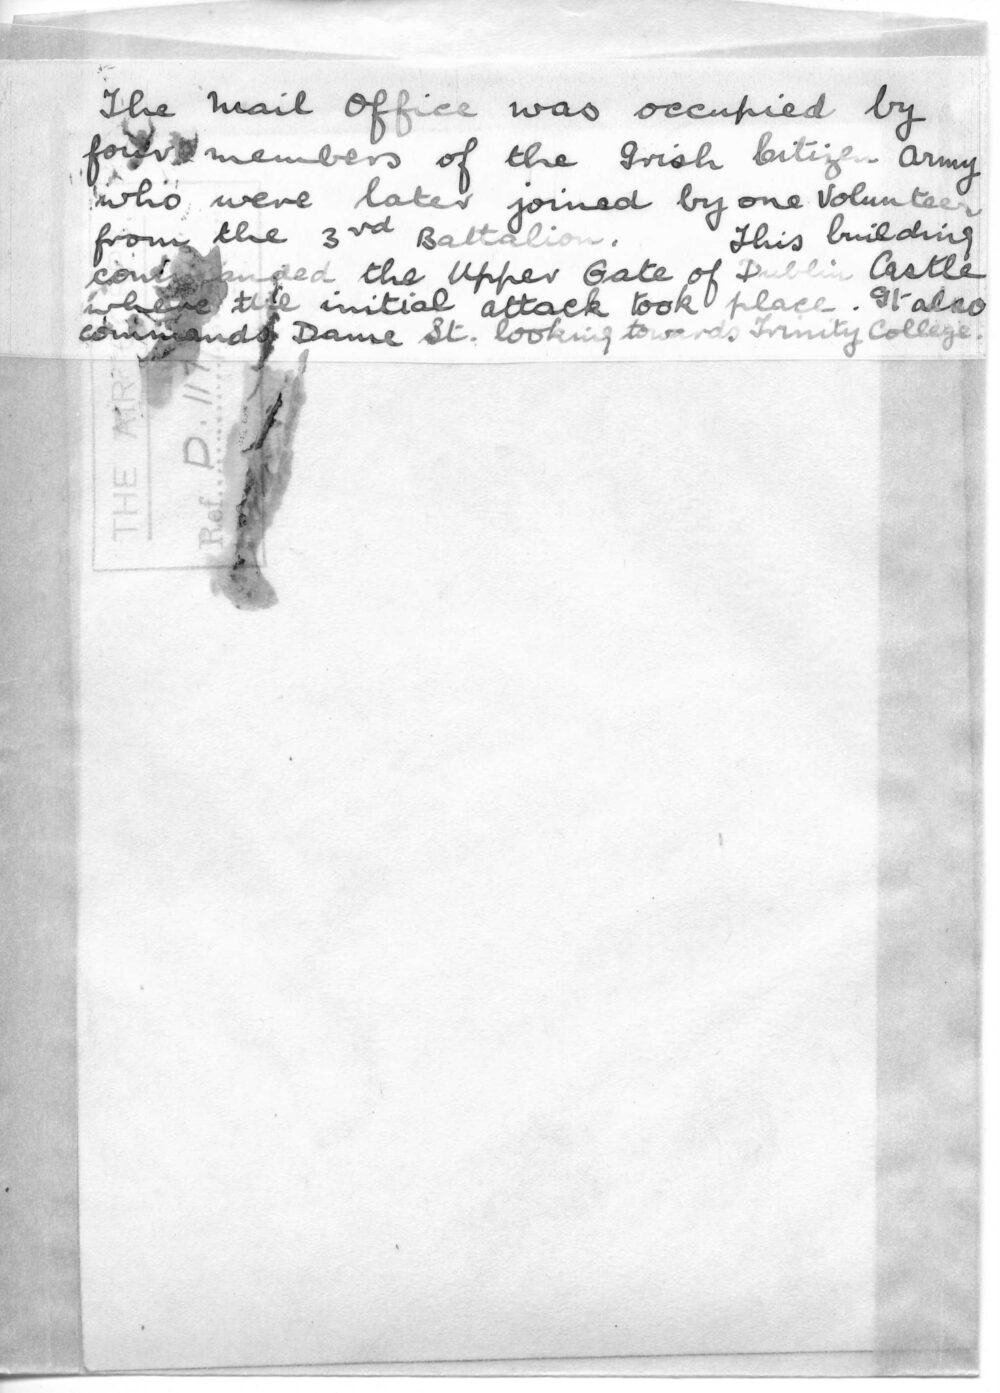 The Mail Office was occupied by
four members of the Irish Citizen Army
who were later joined by one Volunteer
from the 3rd Battalion. This building
commanded the Upper Gate of Dublin Castle
where the initial attack took place. It also
commands Dame St. looking towards Trinity College.
THE AIR
Ref. D. 117